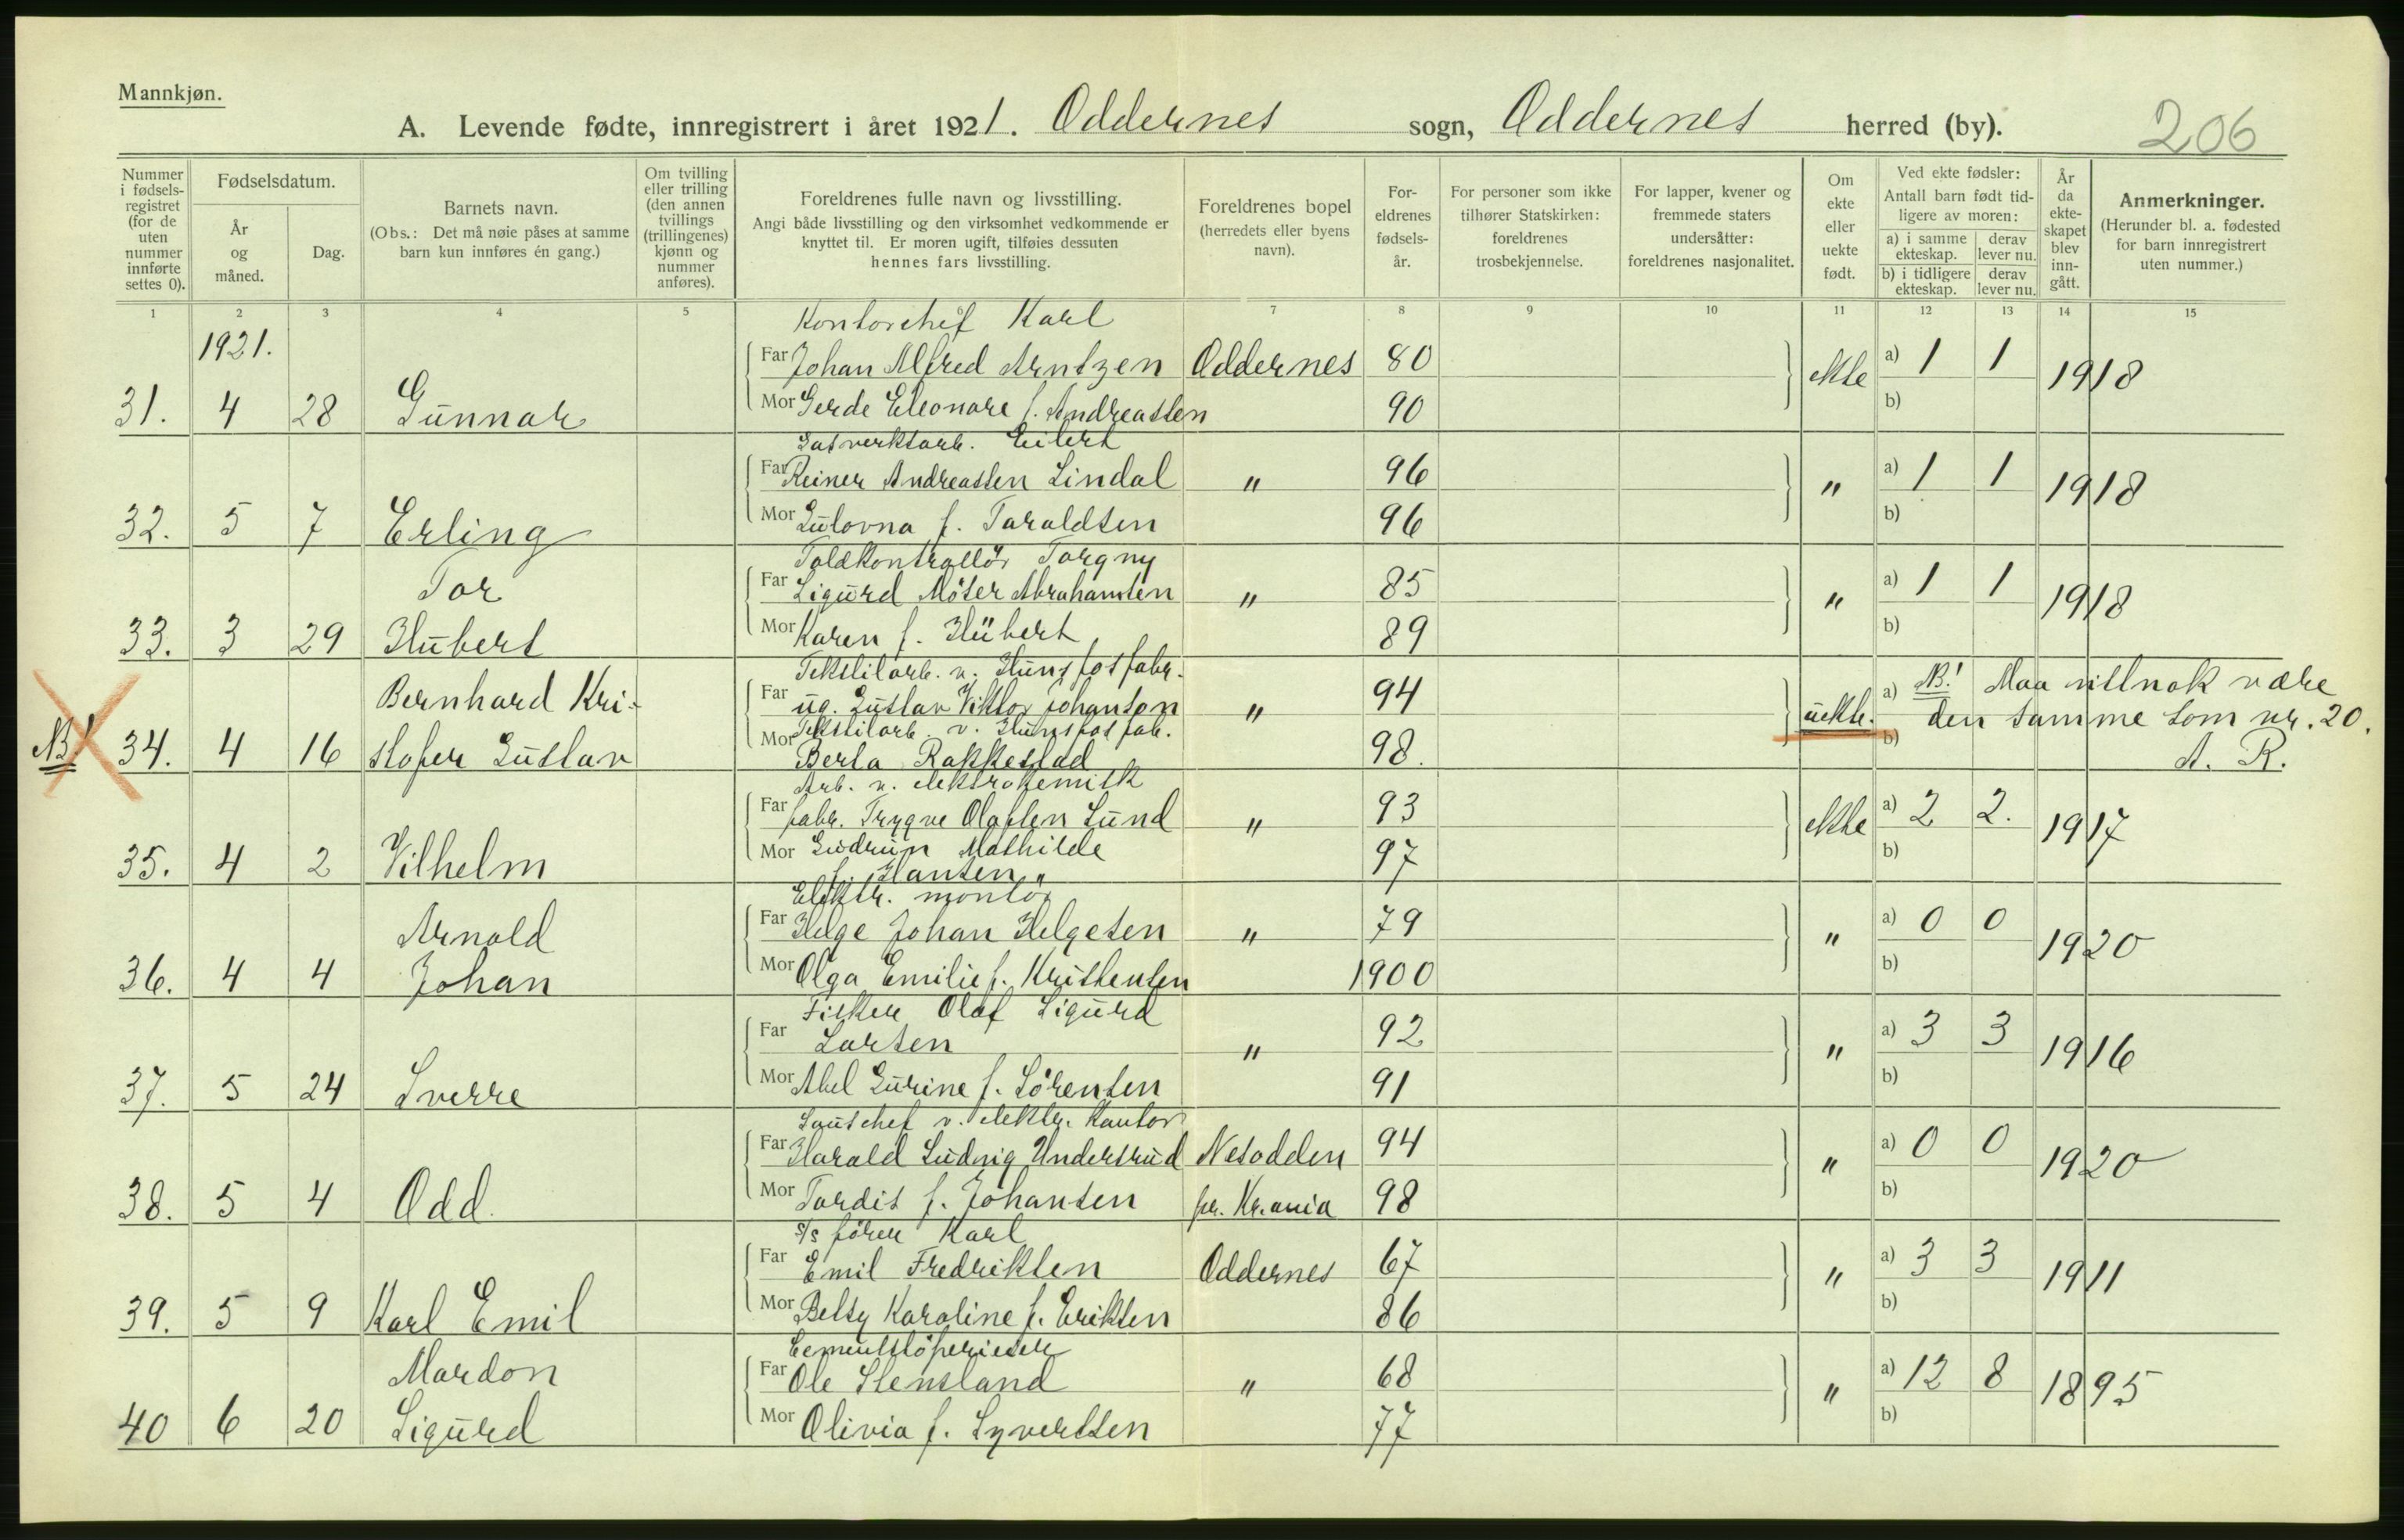 Mannkjøn.
A. Levende fødte, innregistrert i året 1921. Oddernes sogn, Oddernes herred (by). 206
Nummer i fødsels-registret (for de uten nummer innførte settes 0).
Fødselsdatum.
År og måned.
Dag.
Barnets navn.
(Obs.: Det må nøie påses at samme barn kun innføres én gang.)
Om tvilling eller trilling (den annen tvillings (trillingenes) kjønn og nummer anføres).
Foreldrenes fulle navn og livsstilling.
Angi både livsstilling og den virksomhet vedkommende er knyttet til. Er moren ugift, tilføies dessuten hennes fars livsstilling.
Foreldrenes bopel (herredets eller byens navn).
For-eldrenes fødsels-år.
For personer som ikke tilhører Statskirken: foreldrenes trosbekjennelse.
For lapper, kvener og fremmede staters undersåtter: foreldrenes nasjonalitet.
Om ekte eller uekte født.
Ved ekte fødsler: Antall barn født tid-ligere av moren:
a) i samme ekteskap. derav lever nu.
b) i tidligere ekteskap. derav lever nu.
År da ekte-skapet blev inn-gått.
Anmerkninger.
(Herunder bl. a. fødested for barn innregistrert uten nummer.)
1 2 3 4 5 7 8 9 10 11 12 13 14 15
1921.
Kontorchef Karl
Far Johan Alfred Arntzen Oddernes 80 ekte a) 1 1 1918
31. 4 28 Gunnar
Mor Gerde Eleonore f. Andreassen 90 b)
Gasverksarb. Eilert
Far Reiner Andreassen Lindal " 96 " a) 1 1 1918
32. 5 7 Erling
Mor Gulovna f. Taraldsen 96 b)
Toldkontrollör Torgny
Tor
Far Sigurd Möter Abrahamsen " 85 " a) 1 1 1918
33. 3 29 Hubert
Mor Karen f. Hübert 89 b)
Tekstilarb. v. Hunsfos fabr.
Bernhard Kri-
Far ug. Gustav Viktor Johanson " 94 uekte. a) NB! Maa vistnok være
den samme som nr. 20.
NB! 34. 4 16 stofer Gustav
Tekstilarb. v. Hunsfos fab.
Mor Berta Rakkestad 98. b) A. R.
Arb. v. elektrokemisk
Far fabr. Trygve Olafsen Lund " 93 ekte a) 2 2. 1917
35. 4 2 Vilhelm
Mor Gudrun Mathilde 97 b)
f. Hansen "
Elektr. montör
Arnold
Far Helge Johan Helgesen " 79 " a) 0 0 1920
36. 4 4 Johan
Mor Olga Emilie f. Kristensen 1900 b)
Fisker Olaf Sigurd
Far Larsen " 92 " a) 3 3 1916
37. 5 24 Sverre
Mor Abel Gurine f. Sörensen 91 b)
v. elektr. Kontor
Far Harald Ludvig Undersrud Nesodden 94 " a) 0 0 1920
38. 5 4 Odd.
Mor Tordis f. Johansen pr. Kr.ania 98 b)
s/s förer Karl
Far Emil Fredriksen Oddernes 67 " a) 3 3 1911
39. 5 9 Karl Emil
Mor Betsy Karoline f. Eriksen 86 b)
Cementstöperieier
Mardon
Far Ole Stensland " 68 " a) 12 8 1895
40 6 20 Sigurd
Mor Olivia f. Syvertsen 77 b)